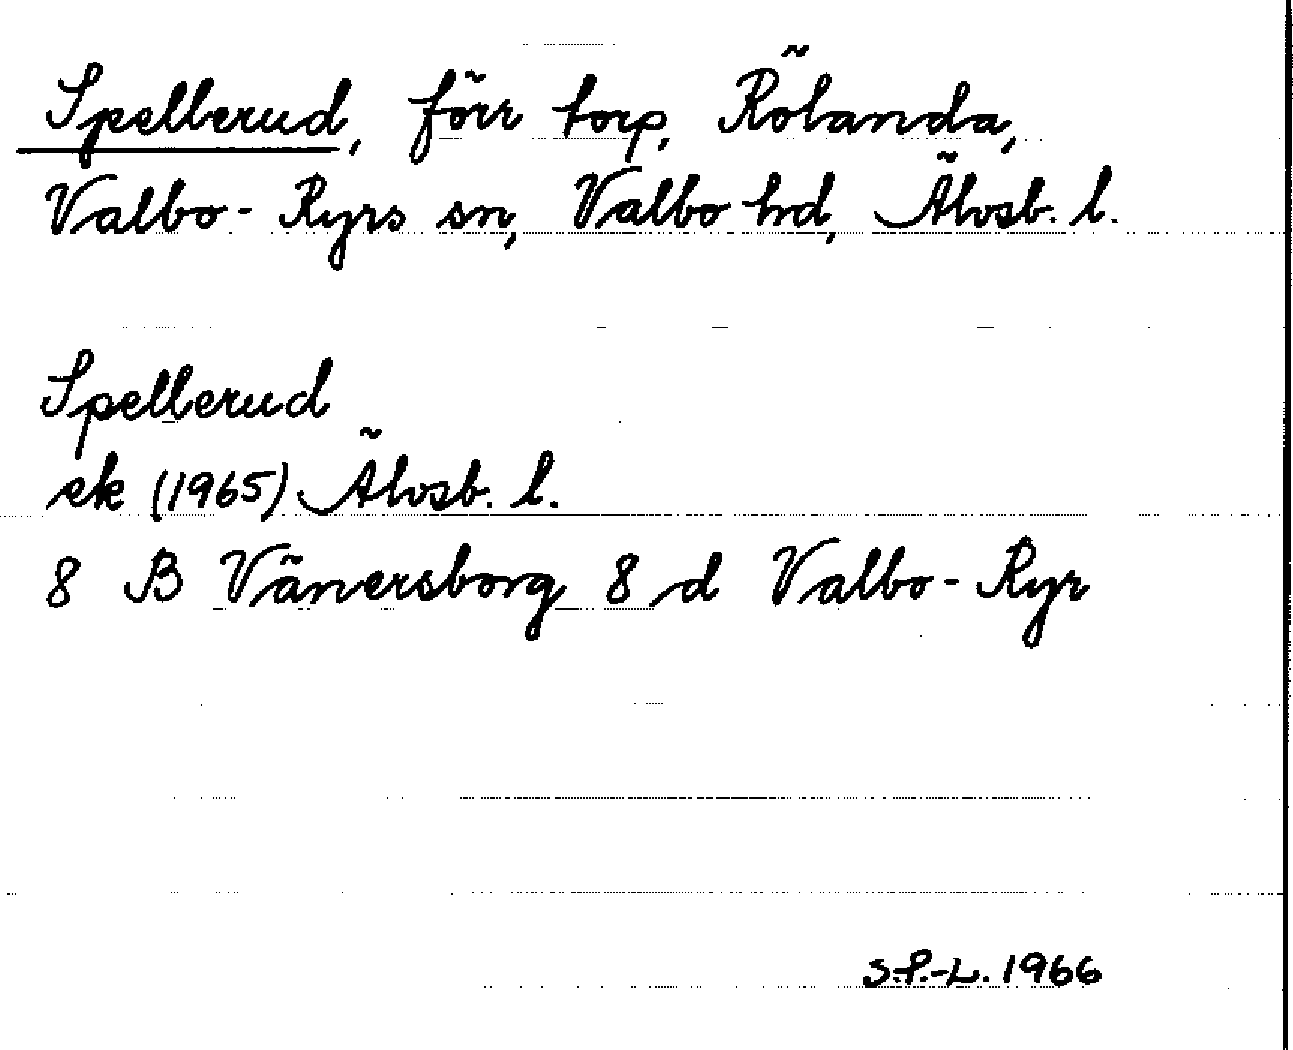 Spellerud, förr torp, Rölanda,
Valbo-Ryrs sn, Valbo hd, Älvsb. l.
Spellerud
ek (1965) Älvsb. l.
8 B Vänersborg 8 d Valbo-Ryr
S.P.-L. 1966